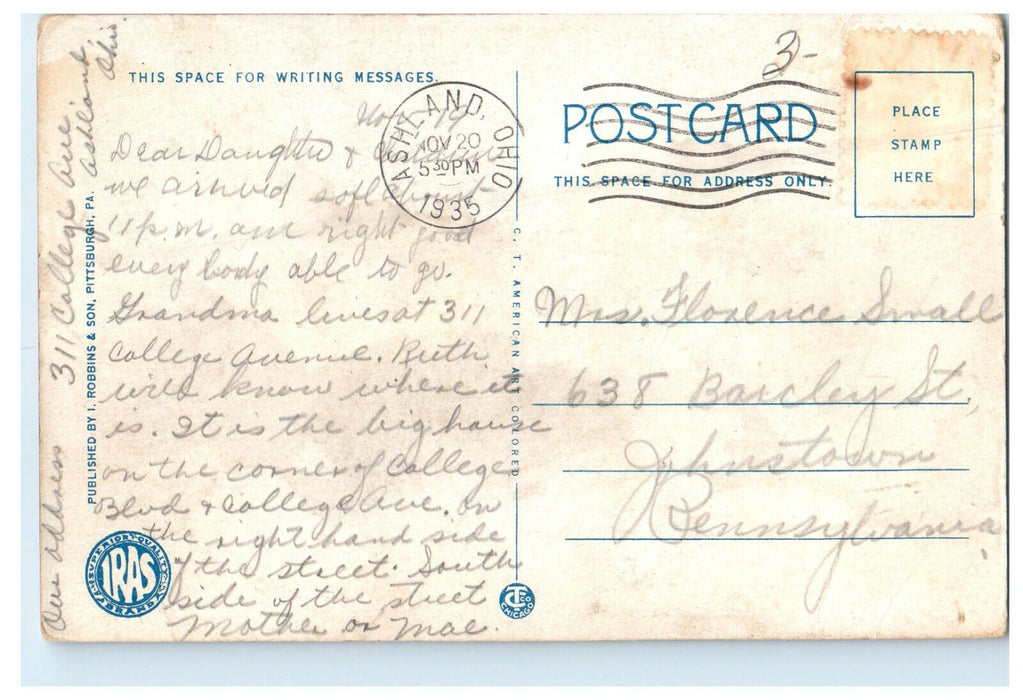 THIS SPACE FOR WRITING MESSAGES.
Dear Daughter &
we arrived safe about
11 p.m. am right good
every body able to go.
Grandma lives at 311
College Avenue. Ruth
will know where it
is. It is the big house
on the corner of College
Blvd & College Ave. on
the right hand side
of the street. South
side of the street
Mother or Mae.
Our address 311 College Ave
Ashland,
Ohio
PUBLISHED BY I. ROBBINS & SON, PITTSBURGH, PA.
SUPERIOR QUALITY
IRAS
BRAND
ASHLAND, OHIO
NOV 20
5 30 PM
1935
C. T. AMERICAN ART COLORED
CT CO
CHICAGO
3-
POST CARD
THIS SPACE FOR ADDRESS ONLY.
PLACE
STAMP
HERE
Mrs. Florence Small
638 Barcley St,
Johnstown
Pennsylvania